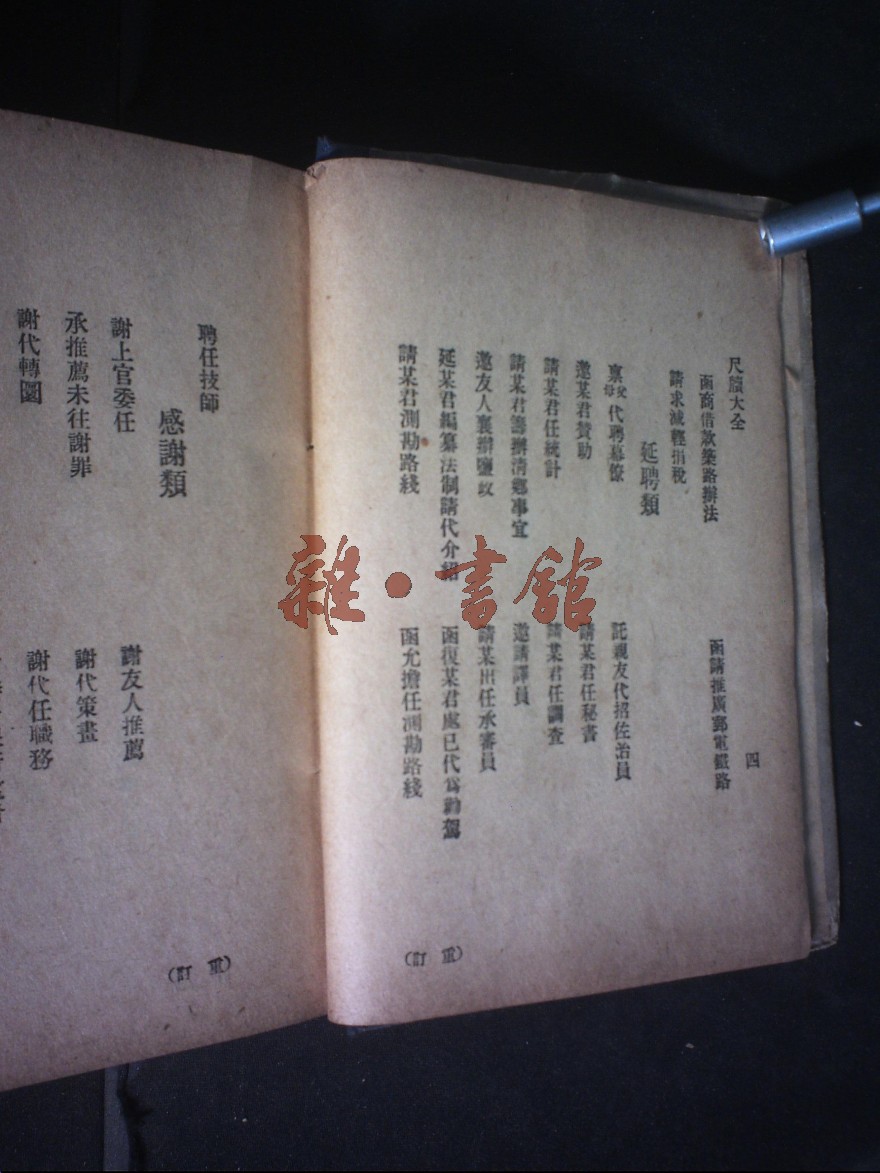 尺牘大全
四
函商借款築路辦法
函請推廣郵電鐵路
請求減輕捐稅
延聘類
稟父母代聘幕僚
託親友代招佐治員
邀某君贊助
請某君任秘書
請某君任統計
請某君任調查
請某君籌辦清鄉事宜
邀請譯員
邀友人襄辦鹽政
請某出任承審員
延某君編纂法制請代介紹
函復某君處已代為勸駕
請某君測勘路綫
函允擔任測勘路綫
(訂重)
聘任技師
感謝類
謝上官委任
謝友人推薦
承推薦未往謝罪
謝代策畫
謝代轉圜
謝代任職務
(訂重)
雜·書館